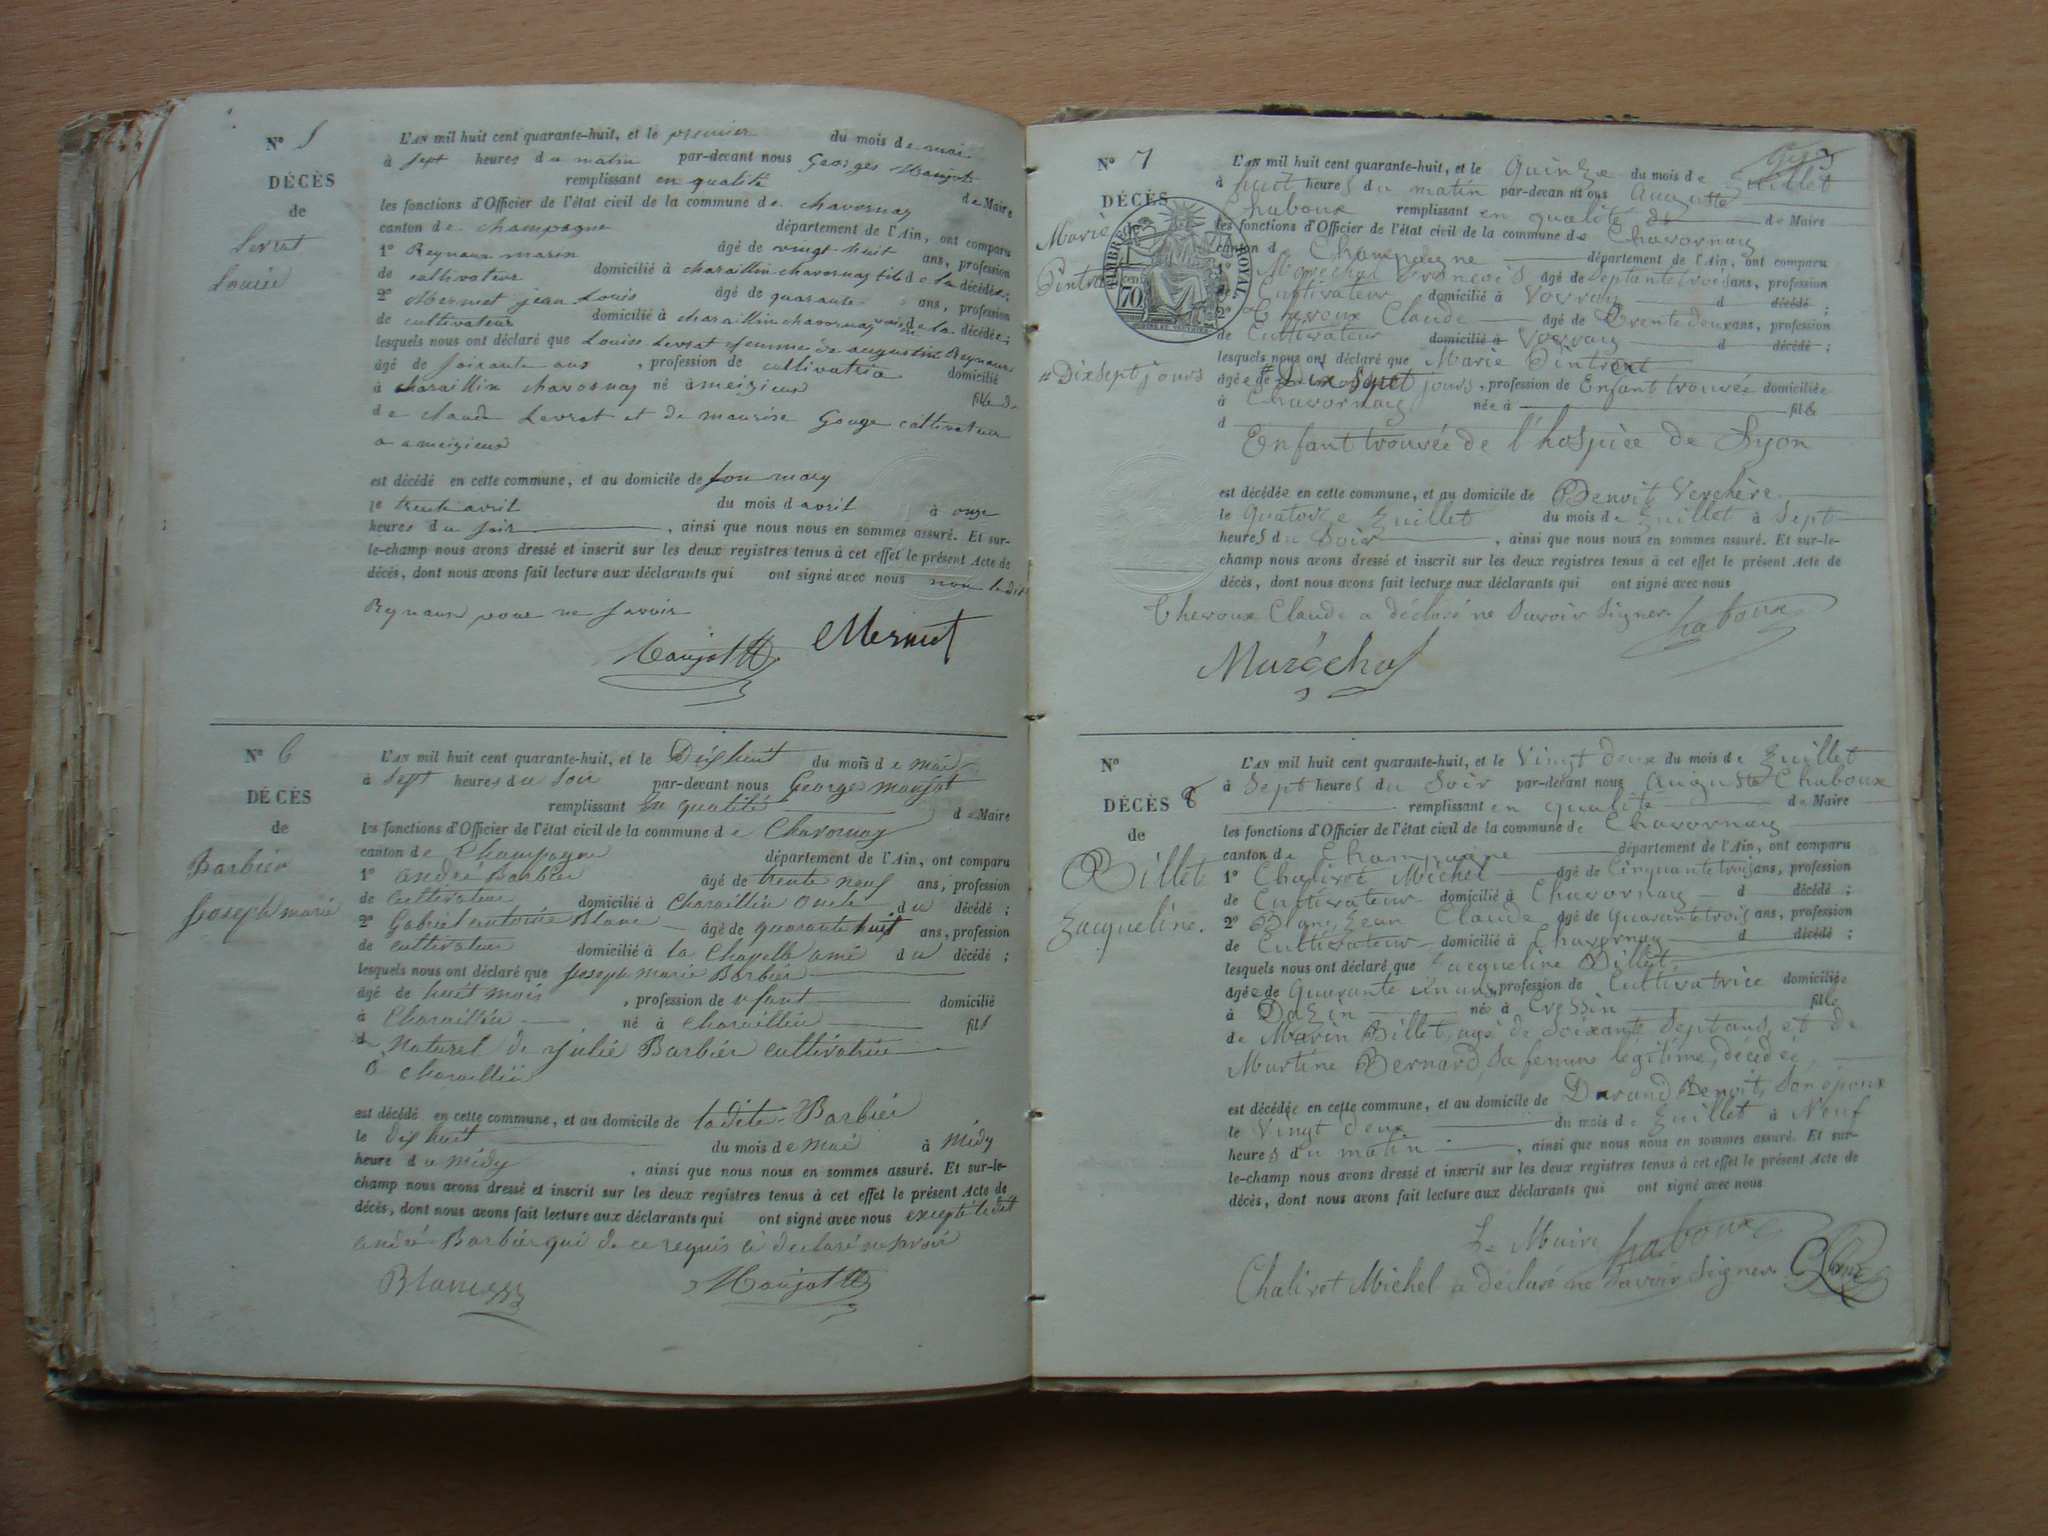 N° 5
DÉCÈS
de
Levrat
Louise
L'AN mil huit cent quarante-huit, et le premier du mois de mai
à sept heures du matin par-devant nous Georges Maujot
remplissant en qualité de Maire
les fonctions d'Officier de l'état civil de la commune de chavornay
canton de champagne département de l'Ain, ont comparu
1° Reynaud marin âgé de vingt huit ans, profession
de cultivateur domicilié à charaillin chavornay fils de la décédée;
2° Mermet jean Louis âgé de quarante ans, profession
de cultivateur domicilié à charaillin chavornay voisin de la décédée;
lesquels nous ont déclaré que Louise Levrat femme de augustin Reynaud
âgé de soixante ans, profession de cultivatrice domicilié
à charaillin chavornay né à ameizieux fille de
de claude Levrat et de Gouge cultivateurs
a ameizieux
est décédé en cette commune, et au domicile de son mary
le trente avril du mois d avril à onze
heures du soir, ainsi que nous nous en sommes assuré. Et sur-
le-champ nous avons dressé et inscrit sur les deux registres tenus à cet effet le présent Acte de
décès, dont nous avons fait lecture aux déclarants qui ont signé avec nous non ledit
Reynaud pour ne savoir
Maujot Mermet
N° 6
DÉCÈS
de
Barbier
Joseph marie
L'AN mil huit cent quarante-huit, et le Dix huit du mois de mai
à Sept heures du Soir par-devant nous George maujot
remplissant En qualité de Maire
les fonctions d'Officier de l'état civil de la commune de Chavornay
canton de Champagne département de l'Ain, ont comparu
1° andré Barbier âgé de trente neuf ans, profession
de cultivateur domicilié à Charaillin oncle du décédé;
2° Gabriel antoine Blanc âgé de quarante huit ans, profession
de cultivateur domicilié à la Chapelle amé du décédé;
lesquels nous ont déclaré que Joseph marie Barbier
âgé de huit mois, profession de nfant domicilié
à Charaillin né à Charaillin fils
d naturel de Julie Barbier cultivatrice
à Charaillin
est décédé en cette commune, et au domicile de ladite Barbier
le dix huit du mois de mai à Midy
heure du Midy, ainsi que nous nous en sommes assuré. Et sur-le-
champ nous avons dressé et inscrit sur les deux registres tenus à cet effet le présent Acte de
décès, dont nous avons fait lecture aux déclarants qui ont signé avec nous excepté ledit
andré Barbier qui de ce requis a déclaré ne savoir
Blanc Maujot
N° 7
DÉCÈS
de
Marie
Pintret
# Dix Sept jours
TIMBRE ROYAL
70 cen
L'AN mil huit cent quarante-huit, et le Quinze du mois de Juillet
à huit heures du matin par-devant nous Auguste
Chaboux remplissant en qualité de de Maire
les fonctions d'Officier de l'état civil de la commune de Chavornay
canton d Champagne département de l'Ain, ont comparu
1° Maréchal François âgé de Septante trois ans, profession
de Cultivateur domicilié à Vovray d décédé;
2° Theroux Claude âgé de Trente deux ans, profession
de Cultivateur domicilié à Vovray d décédé;
lesquels nous ont déclaré que Marie Pintret
âgée de # Dix Sept jours, profession de Enfant trouvée domiciliée
à Chavornay née à fille
d
Enfant trouvée de l'hospice de Lyon
est décédée en cette commune, et au domicile de Benoit Verchère
le Quatorze Juillet du mois de Juillet à Sept
heures du Soir, ainsi que nous nous en sommes assuré. Et sur-le-
champ nous avons dressé et inscrit sur les deux registres tenus à cet effet le présent Acte de
décès, dont nous avons fait lecture aux déclarants qui ont signé avec nous
Theroux Claude a déclaré ne Savoir Signer. Chaboux
Maréchal
N°
DÉCÈS 8
de
Billet
Jacqueline.
L'AN mil huit cent quarante-huit, et le Vingt deux du mois de Juillet
à Sept heures du Soir par-devant nous Auguste Chaboux
remplissant en qualité de Maire
les fonctions d'Officier de l'état civil de la commune de Chavornay
canton de Champagne département de l'Ain, ont comparu
1° Chalivet Michel âgé de Cinquante trois ans, profession
de Cultivateur domicilié à Chavornay d décédé;
2° Blanc Jean Claude âgé de Quarante trois ans, profession
de Cultivateur domicilié à Chavornay d décédé;
lesquels nous ont déclaré que Jacqueline Billet,
âgée de Quarante un ans, profession de Cultivatrice domiciliée
à Dazin née à Cressin fille
de Marin Billet, agé de Soixante Sept ans, et de
Martine Bernard, Sa femme légitime, décédée
est décédée en cette commune, et au domicile de Durand Benoit, Son époux
le Vingt deux du mois de Juillet à Neuf
heures du matin, ainsi que nous nous en sommes assuré. Et sur-
le-champ nous avons dressé et inscrit sur les deux registres tenus à cet effet le présent Acte de
décès, dont nous avons fait lecture aux déclarants qui ont signé avec nous
Le Maire Chaboux
Chalivet Michel a déclaré ne Savoir Signer. Blanc